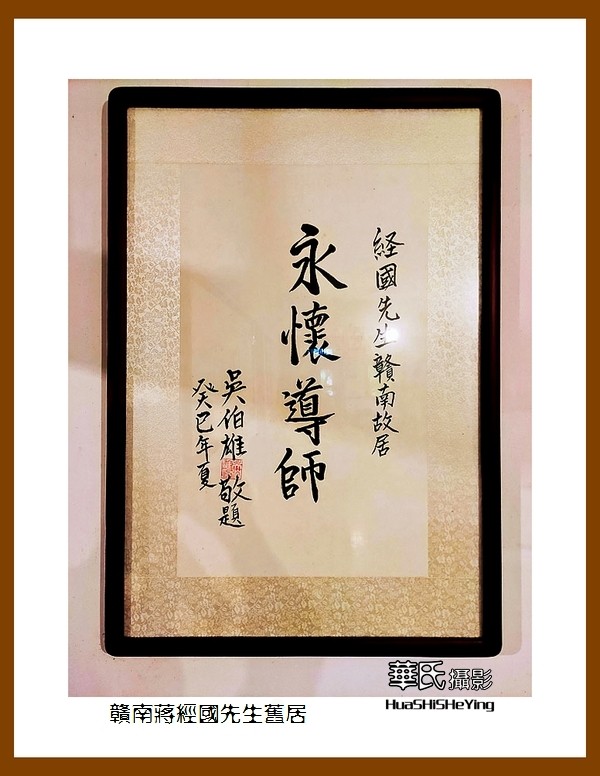 経國先生贛南故居
永懷導師
吳伯雄敬題
癸巳年夏
華氏攝影
HuaSHiSHeYing
贛南蔣經國先生舊居